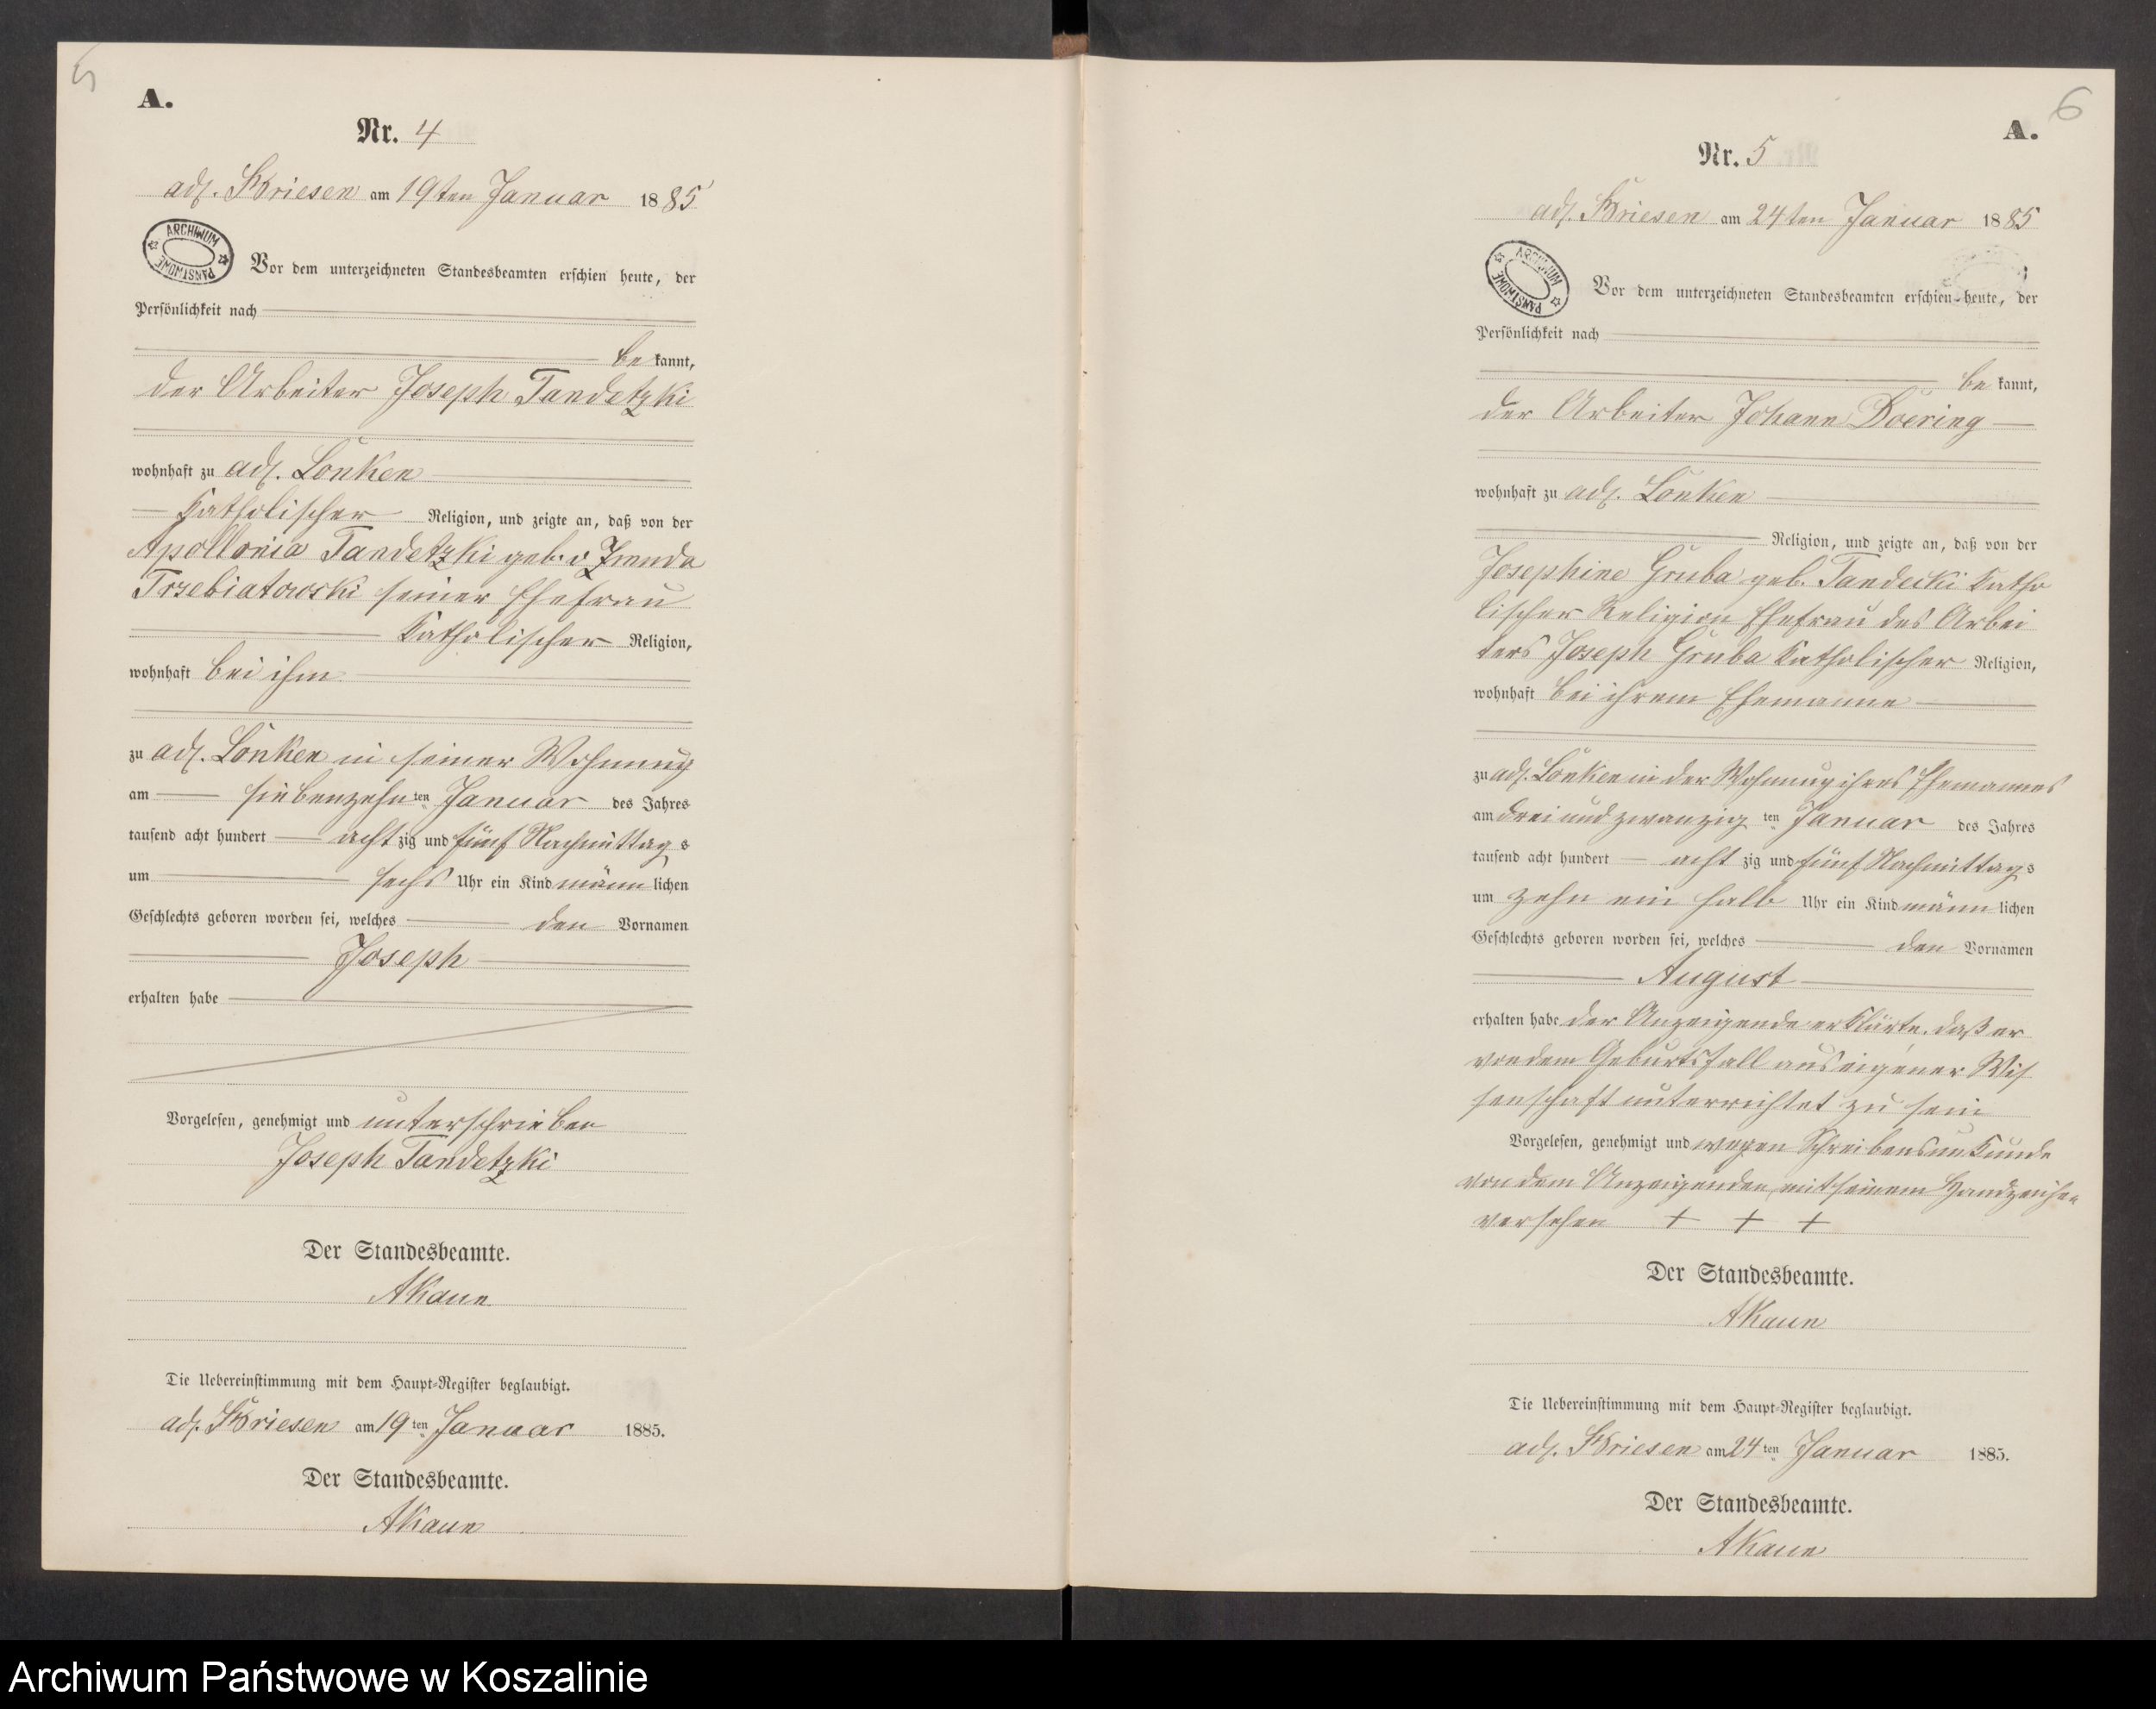 5
A.
Nr. 4
adl. Briesen am 19ten Januar 1885
ARCHIWUM PAŃSTWOWE
Vor dem unterzeichneten Standesbeamten erschien heute, der
Persönlichkeit nach
be kannt,
der Arbeiter Joseph Tandetzki
wohnhaft zu adl. Lonken
katholischer Religion, und zeigte an, daß von der
Apollonia Tandetzki geb. v
Trzebiatowski seiner Ehefrau
katholischer Religion,
wohnhaft bei ihm
zu adl. Lonken in seiner Wohnung
am siebenzehn ten Januar des Jahres
tausend acht hundert acht zig und fünf Nachmittag s
um sechs Uhr ein Kind männ lichen
Geschlechts geboren worden sei, welches den Vornamen
Joseph
erhalten habe
Vorgelesen, genehmigt und unterschrieben
Joseph Tandetzki
Der Standesbeamte.
AKaun
Die Uebereinstimmung mit dem Haupt-Register beglaubigt.
adl. Briesen am 19 ten Januar 1885.
Der Standesbeamte.
AKaun
6
A.
Nr. 5
adl. Briesen am 24ten Januar 1885
ARCHIWUM PAŃSTWOWE
Vor dem unterzeichneten Standesbeamten erschien heute, der
Persönlichkeit nach
be kannt,
der Arbeiter Johann Doering
wohnhaft zu adl. Lonken
Religion, und zeigte an, daß von der
Josephine Gruba geb. Tandecki katho
lischer Religion Ehefrau des Arbei
ters Joseph Gruba katholischer Religion,
wohnhaft bei ihrem Ehemanne
zu adl. Lonken in der Wohnung ihres Ehemannes
am drei und zwanzig ten Januar des Jahres
tausend acht hundert acht zig und fünf Nachmittag s
um zehn ein halb Uhr ein Kind männ lichen
Geschlechts geboren worden sei, welches den Vornamen
August
erhalten habe der Anzeigende erklärte, daß er
von dem Geburtsfall aus eigener Wis
senschaft unterrichtet zu sein
Vorgelesen, genehmigt und wegen Schreibensunkunde
von dem Anzeigenden mit seinem Handzeichen
versehen + + +
Der Standesbeamte.
AKaun
Die Uebereinstimmung mit dem Haupt-Register beglaubigt.
adl. Briesen am 24 ten Januar 1885.
Der Standesbeamte.
AKaun
Archiwum Państwowe w Koszalinie